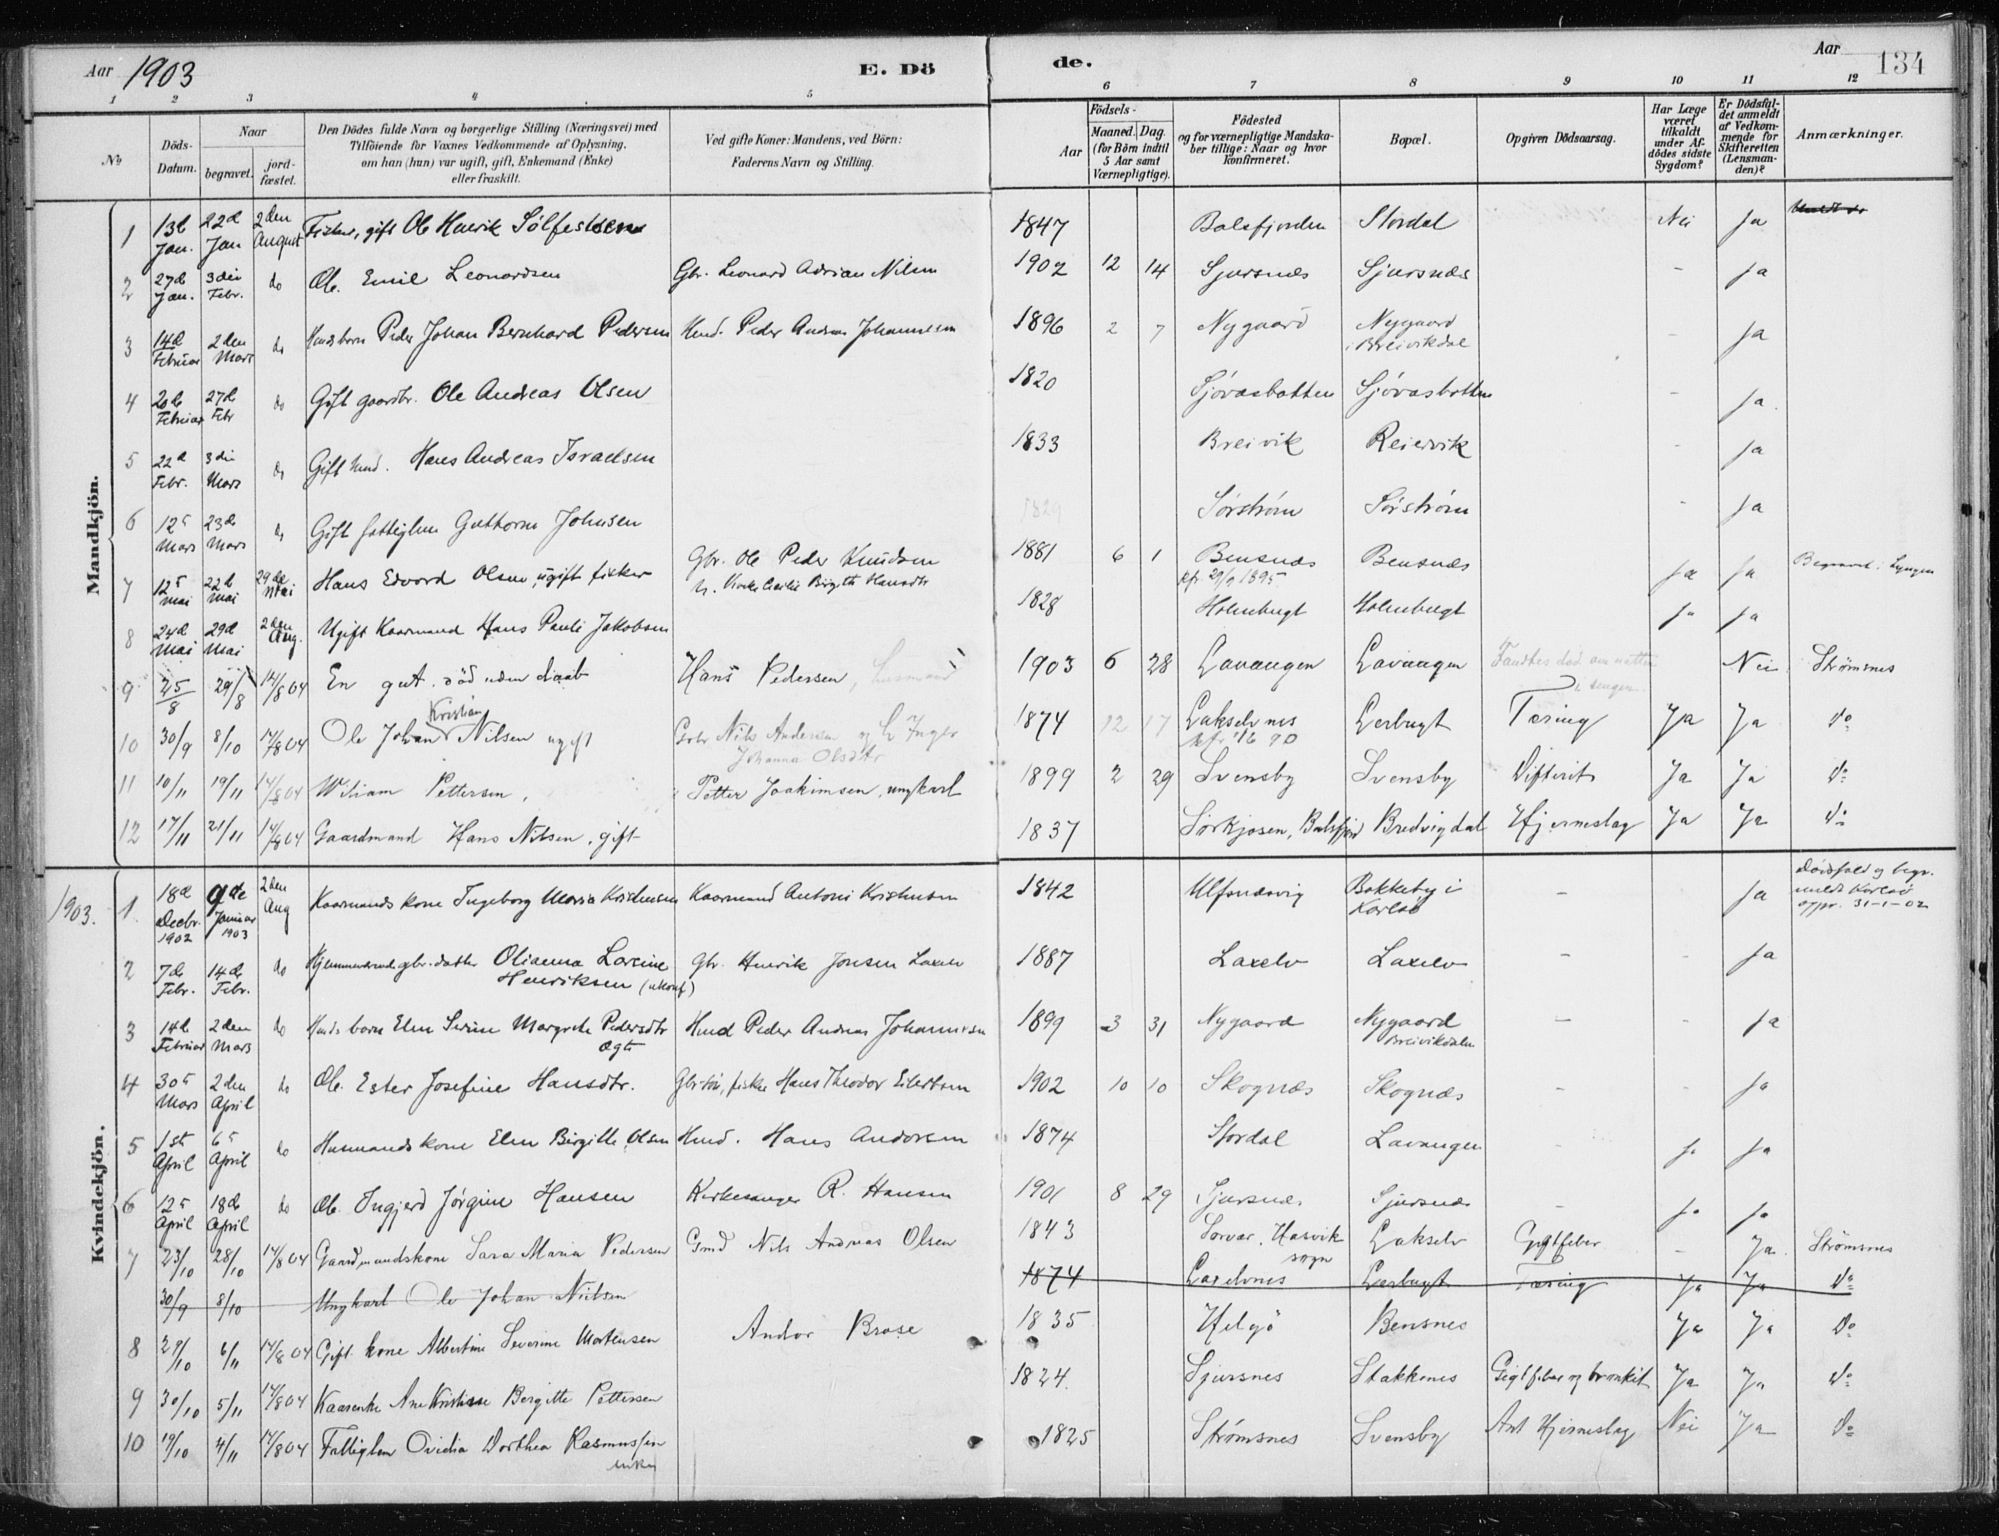 Aar 1903 E. Dö de. Aar 134
1 2 3 4 5 6 7 8 9 10 11 12
No
Döds-Datum.
Naar
begravet.
jord-fæstet.
Den Dödes fulde Navn og borgerlige Stilling (Næringsvei) med
Tilföiende for Voxnes Vedkommende af Oplysning,
om han (hun) var ugift, gift, Enkemand (Enke)
eller fraskilt.
Ved gifte Koner: Mandens, ved Börn:
Faderens Navn og Stilling.
Födsels-
Aar
Maaned. Dag.
(for Börn indtil
5 Aar samt
Værnepligtige).
Födested
og for værnepligtige Mandska-
ber tillige: Naar og hvor
konfirmeret.
Bopæl.
Opgiven Dödsaarsag.
Har Læge
været
tilkaldt
under Af-
dödes sidste
Sygdom?
Er Dödsfal-
det anmeldt
af Vedkom-
mende for
Skifteretten
(Lensman-
den)?
Anmærkninger.
Mandkjön.
1 13d Jan. 22d Jan 2den August Fisker, gift Ole Henrik Sölfestsen 1847 Balsfjorden Stordal Nei Ja
2 27d Jan. 3die Febr. do Ole Emil Leonardsen Gbr. Leonard Adrian Nilsen 1902 12 14 Sjursnæs Sjursnæs - Ja
3 14d Februar 2den Mars do Husbs barn Peder Johan Bernhard Pedersen Husd. Peder Andreas Johannesen 1896 2 7 Nygaard Nygaard i Breivikdal - Ja
4 20d Februar 27d Febr do Gift gaardbr. Ole Andreas Olsen 1820 Sjövasbotten Sjövasbotten - Ja.
5 22d Febr. 3die Mars do Gift husd. Hans Andreas Israelsen 1833 Breivik Reiervik - Ja
6 12te Mars 23d Mars do Gift fattiglem Guthorm Johnsen 1829 Sörström Sörström - Ja
7 12te mai 22d mai 29de Mai Hans Edvard Olsen, ugift fisker Gbr. Ole Peder Knudsen 1881 6 1 Bensnæs kfr. 29/9 1895 Bensnæs Ja Ja Begravet i Lyngen
8 24d Mai 29d Mai 2den Aug. Ugift Kaarmand Hans Pauli Jakobsen 1828 Holmbugt Holmbugt Ja Ja
9 25/8 29/8 14/8 04 En gut. död uden daab Hans Pedersen, husmand 1903 6 28 Lavangen Lavangen Fandtes död om natten i sengen. Nei Strömsnes
10 30/9 8/10 14/8 04 Ole Johan Kristian Nilsen ugift Gbr Nils Andersen og h. Inger Johanna Olsdtr 1874 12 17 Lakselvnes kfr. 1/6 90 Lerbugt Tæring Ja Ja do
11 10/11 19/11 14/8 04 Wiliam Pettersen, Petter Joakimsen, ungkarl 1899 2 29 Svensby Svensby Difterit Ja Ja do
12 17/11 21/11 14/8 04 Gaardmand Hans Nilsen, gift 1837 Sörkjosen, Balsfjord Bredvigdal Hjerneslag Ja Ja do
1903.
Kvindekjön.
1. 18d Decbr. 1902 9de Januar 1903 2den Aug Kaarmands kone Ingeborg Maria Kristensen Kaarmand Antoni Kristensen 1842 Ulfsnæsvig Bakkeby i Karlsö - - Ja Dödsfald og begr. meldt Karlsö oppr. 31-1-02
2 7de Febr. 14de Febr. do Hjemmeværende gbr. datter Olianna Lovine Henriksen (ukonf) Gbr. Henrik Jonsen Laxelv 1887 Laxelv Laxelv - - Ja
3 14d Februar 2den Mars do Husds barn Elen Serine Margrete Pedersdtr ægte Husd Peder Andreas Johannesen 1899 3 31 Nygaard Nygaard Breivikdalen - - Ja
4 30te Mars 2den April do Ole. Ester Josefine Hansdtr. Gbr-sön, fisker Hans Theodor Eilertsen 1902 10 10 Skognæs Skognæs - - Ja
5 1ste April 6te April do Husmands kone Elen Birgitte Olsen Husd. Hans Andersen 1874 Stordal Lavangen - Ja Ja
6 12te April 18de April do Ole. Ingjerd Jörgine Hansen Kirkesanger R. Hansen 1901 8 29 Sjursnæs Sjursnæs - Ja Ja
7 23/10 28/10 14/8 04 Gaardmandskone Sara Maria Pedersen Gmd Nils Andreas Olsen 1843 Sorvær, Hasvik sogn Lakselv Gigtfeber - Ja. Strömsnes
30/9 8/10 Ungkarl Ole Johan Nilsen 1874 Laxelvnes Lerbugt Tæring Ja Ja do
8 29/10 6/11 14/8 04 Gift kone Albertine Severine Mortensen Andor Brose 1835 Helgö Bensnes Ja Ja Do
9 30/10 5/11 14/8 04 Kaarenke Ane Kristine Bergitte Pettersen 1824. Sjursnes Stakkenes Gigtfeber og bronkit Ja Ja do
10 19/10 4/11 14/8 04 Fattiglem Ovidia Dorthea Rasmussen enke 1825 Strömsnes Svensby Ant Hjerneslag Nei Ja do